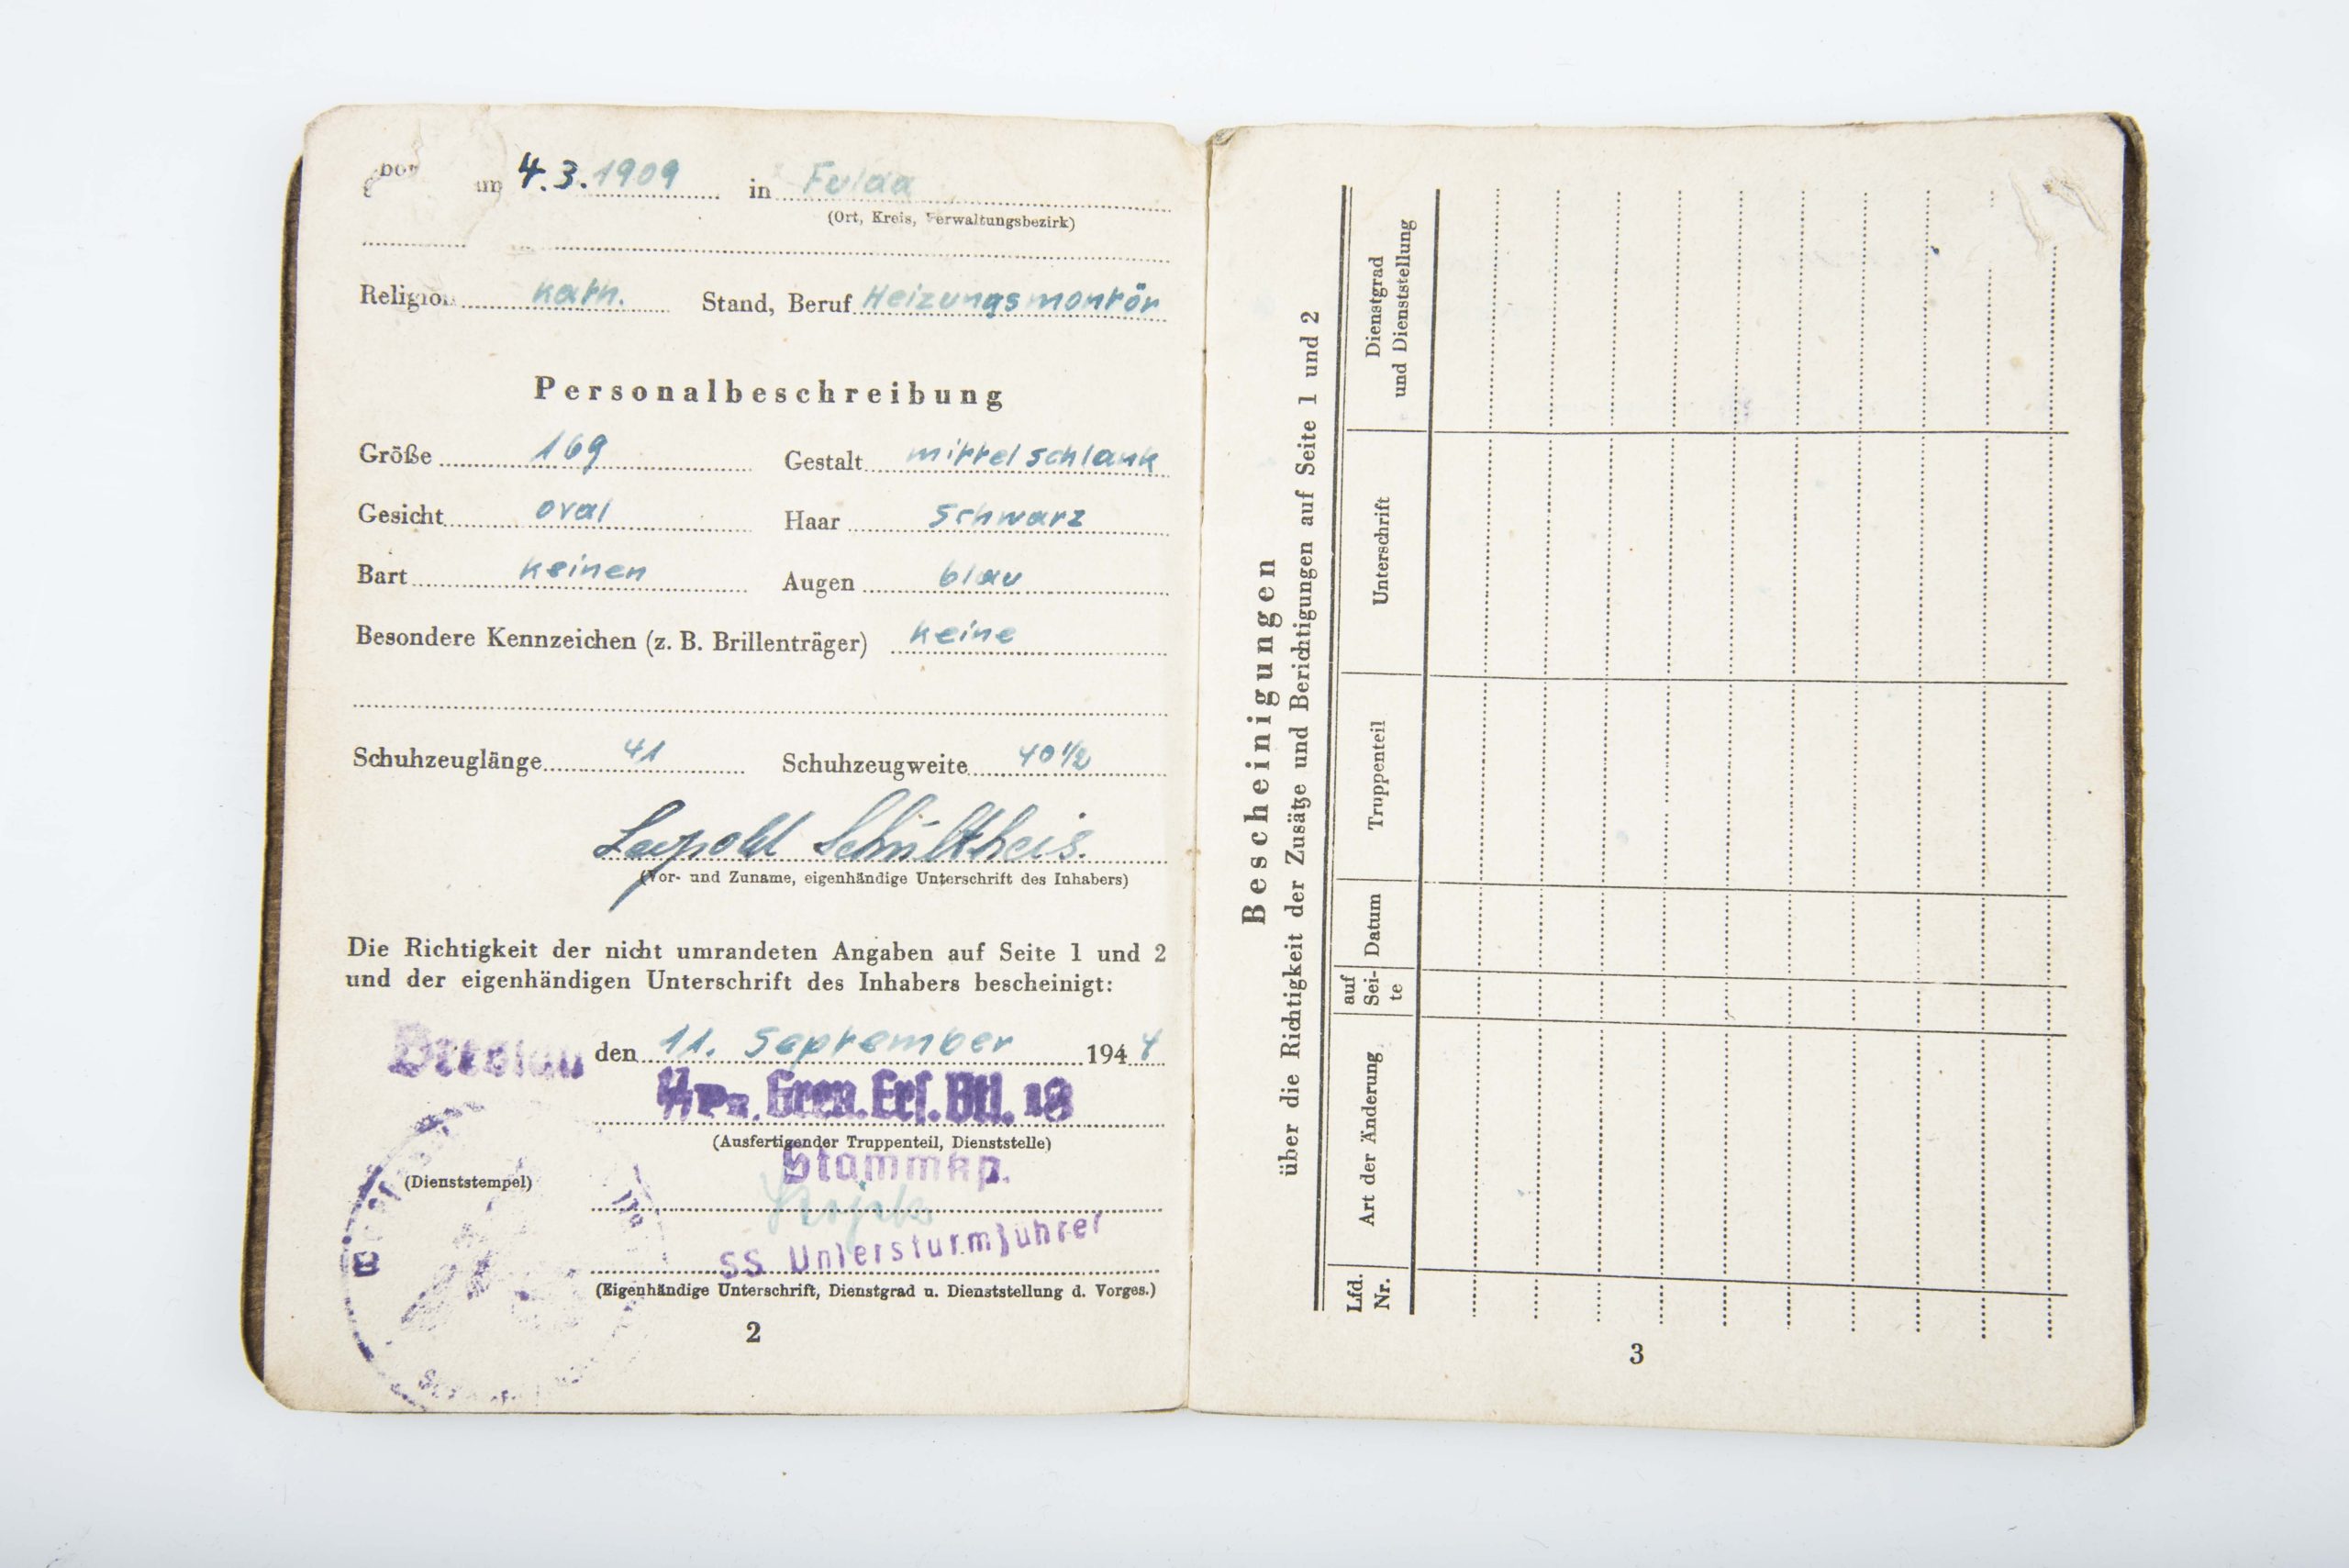 am 4.3.1909 in Fulda
(Ort, Kreis, Verwaltungsbezirk)
Religion kath. Stand, Beruf Heizungsmontör
Personalbeschreibung
Größe 169 Gestalt mittelschlank
Gesicht oval Haar schwarz
Bart keinen Augen blau
Besondere Kennzeichen (z. B. Brillenträger) keine
Schuhzeuglänge 41 Schuhzeugweite 40½
Leopold Schultheis.
(Vor- und Zuname, eigenhändige Unterschrift des Inhabers)
Die Richtigkeit der nicht umrandeten Angaben auf Seite 1 und 2
und der eigenhändigen Unterschrift des Inhabers bescheinigt:
Breslau den 11. September 1944
Gren. Ers. Btl. 18
(Ausfertigender Truppenteil, Dienststelle)
Stammkp.
(Dienststempel)
SS Untersturmführer
(Eigenhändige Unterschrift, Dienstgrad u. Dienststellung d. Vorges.)
2
Bescheinigungen
über die Richtigkeit der Zusätze und Berichtigungen auf Seite 1 und 2
Lfd. Nr.
Art der Änderung
auf Sei- te
Datum
Truppenteil
Unterschrift
Dienstgrad
und Dienststellung
3